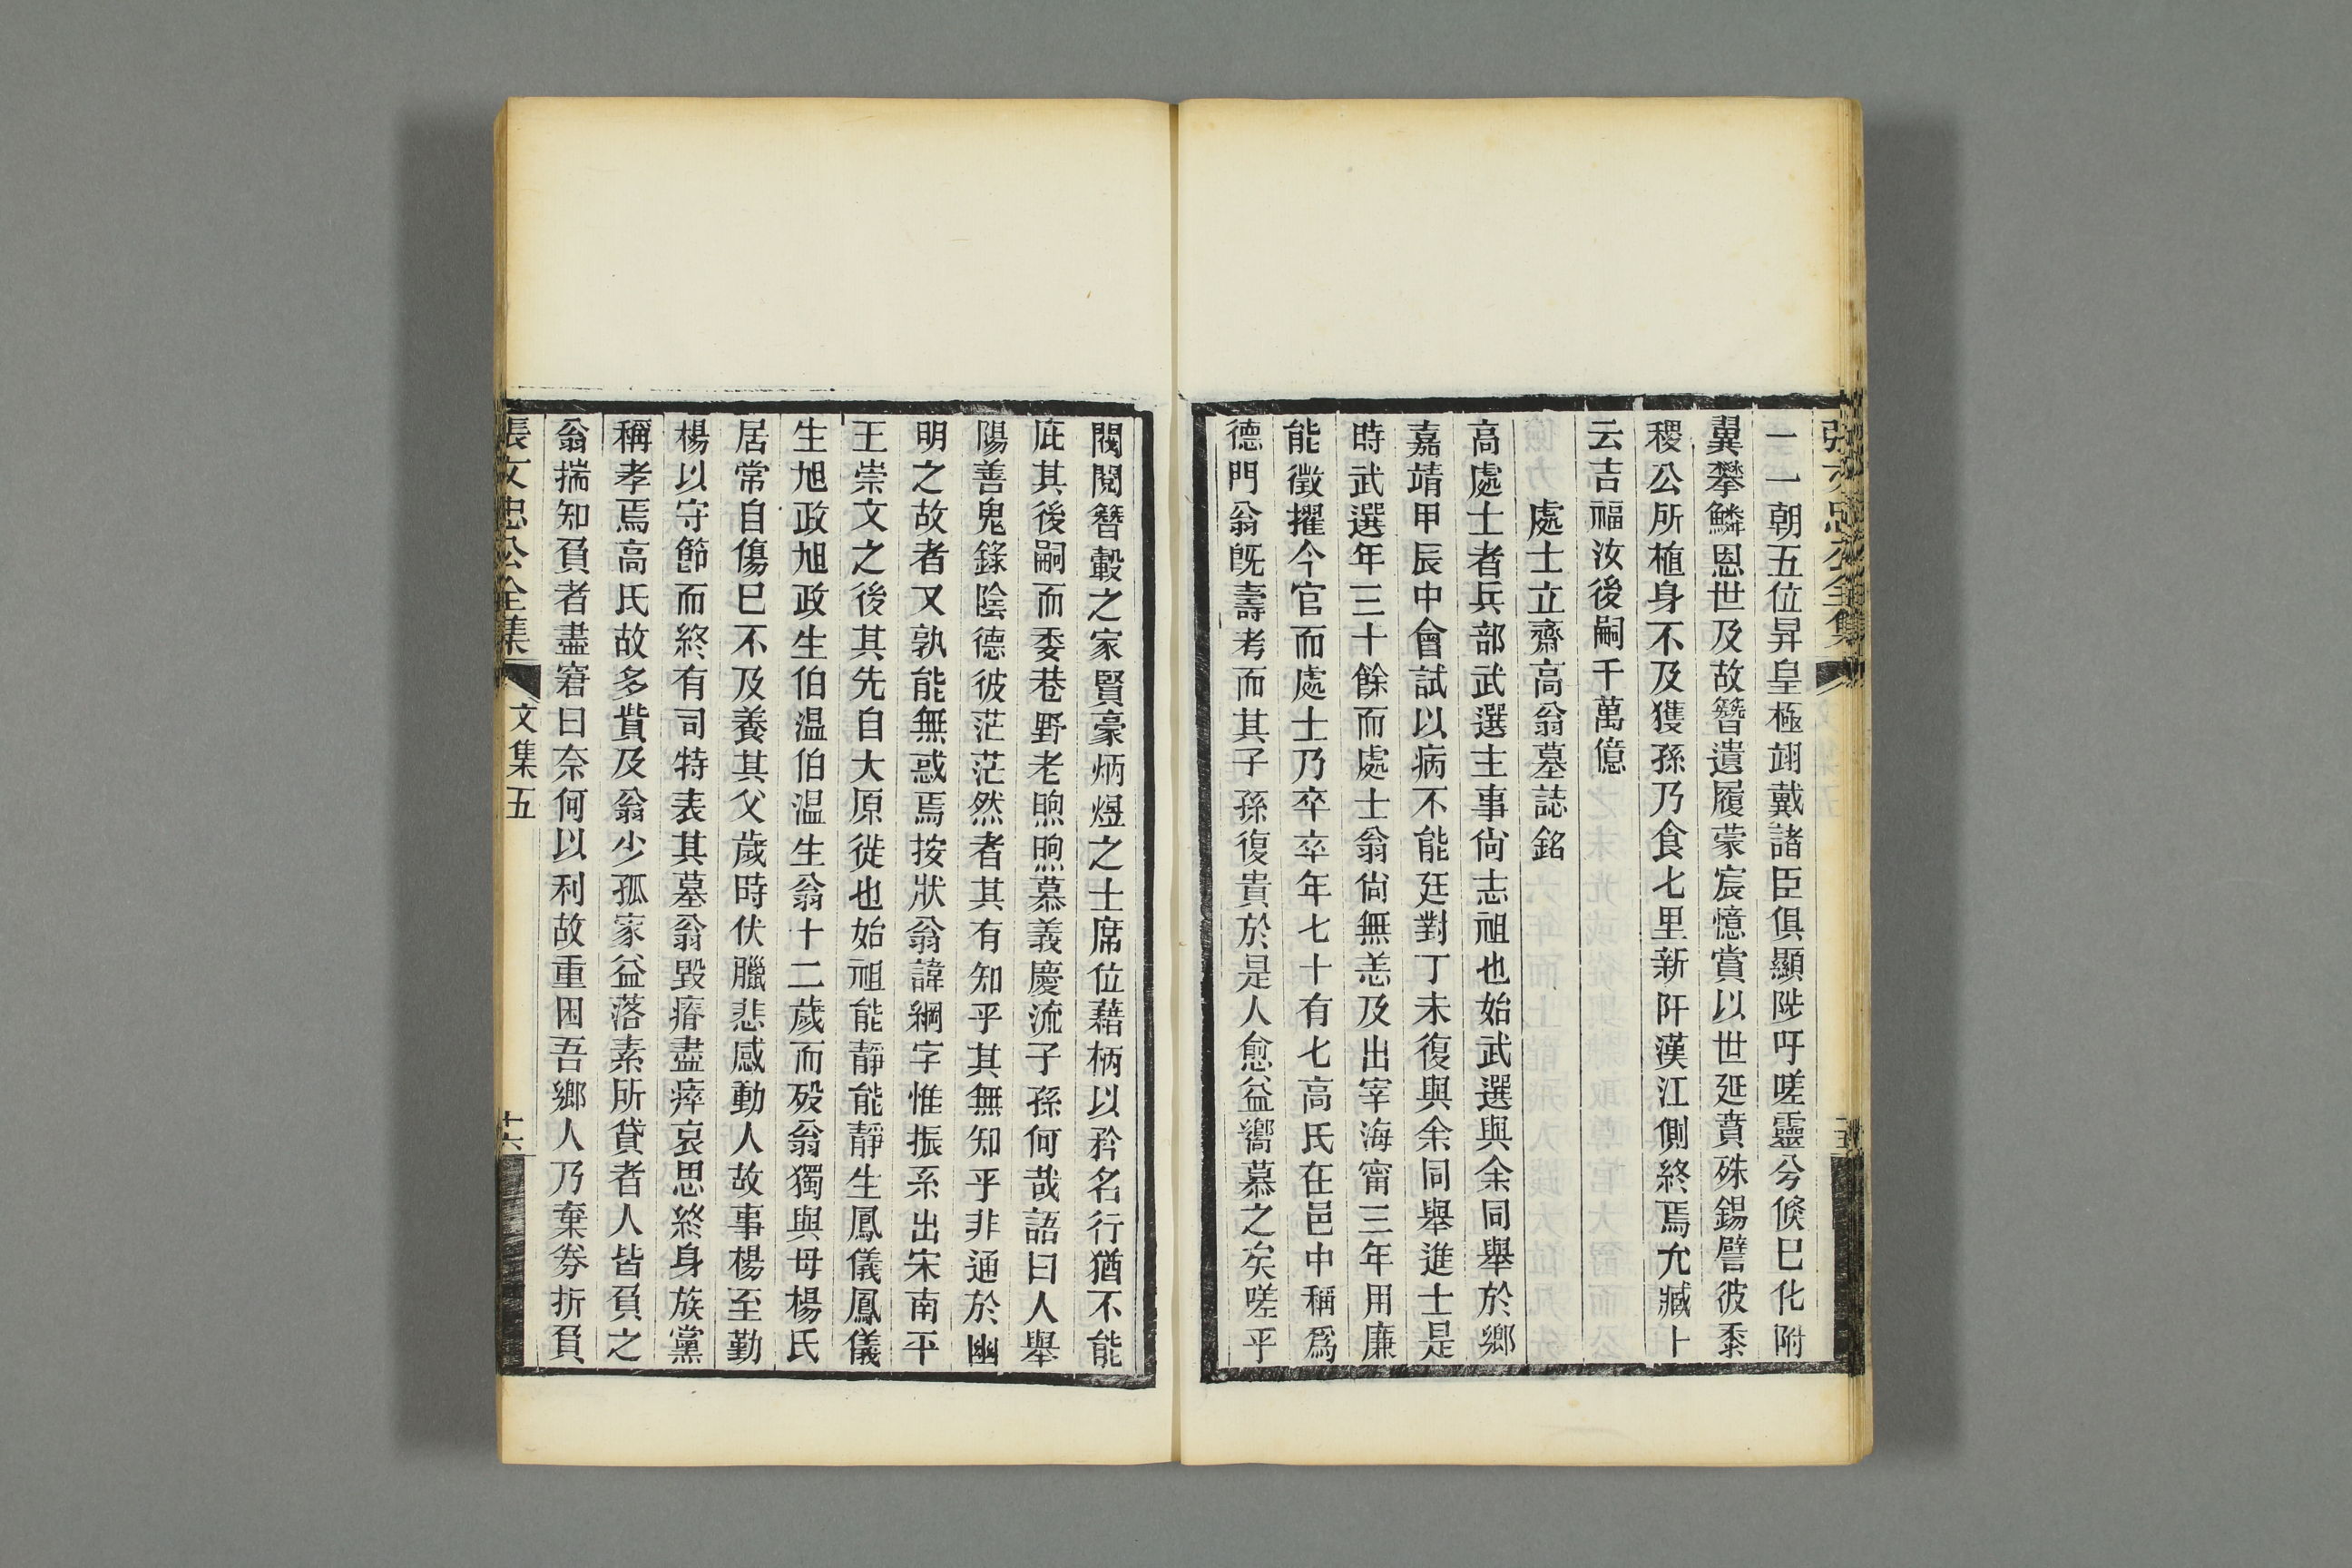 張文忠公全集
一一朝五位昇皇極翊戴諸臣俱顯陟吁嗟靈兮倏巳化附
翼攀鱗恩世及故簪遺履蒙宸憶賞以世延賁殊錫譬彼黍
稷公所植身不及獲孫乃食七里新阡漢江側終焉允臧卜
云吉福汝後嗣千萬億
處士立齋高翁墓誌銘
高處士者兵部武選主事尙志祖也始武選與余同舉於鄉
嘉靖甲辰中會試以病不能廷對丁未復與余同舉進士是
時武選年三十餘而處士翁尙無恙及出宰海甯三年用廉
能徵擢今官而處士乃卒卒年七十有七高氏在邑中稱爲
德門翁旣壽考而其子孫復貴於是人愈益嚮慕之矣嗟乎
閥閱簪轂之家賢豪炳煜之士席位藉柄以矜名行猶不能
庇其後嗣而委巷野老煦煦慕義慶流子孫何哉語曰人舉
陽善鬼錄陰德彼茫茫然者其有知乎其無知乎非通於幽
明之故者又孰能無惑焉按狀翁諱綱字惟振系出宋南平
王崇文之後其先自大原徙也始祖能靜能靜生鳳儀鳳儀
生旭政旭政生伯溫伯溫生翁十二歲而歿翁獨與母楊氏
居常自傷巳不及養其父歲時伏臘悲感動人故事楊至勤
楊以守節而終有司特表其墓翁毀瘠盡瘁哀思終身族黨
稱孝焉高氏故多貲及翁少孤家益落素所貸者人皆負之
翁揣知負者盡窘曰奈何以利故重困吾鄉人乃棄劵折負
張文忠公全集
文集五
十六